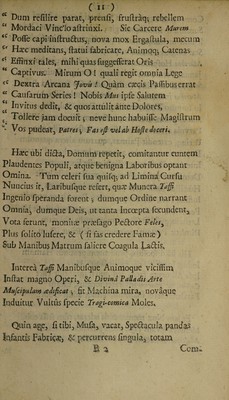 ( 11 )
" Dum resilire parat, prensi, frustràq; rebellem
" Mordaci Vinc'lo astrinxi. Sic Carcere Murem
" Posse capi instructus, nova mox Ergastula, mecum
" Hæc meditans, statui fabricare, Animoq; Catenas
" Effinxi tales, mihi quas suggesserat Oris
" Captivus. Mirum O! quali regit omnia Lege
" Dextra Arcana Jovis! Quàm cæcis Passibus errat
" Causarum Series! Nobis Mus ipse Salutem
" Invitus dedit, & quot attulit ante Dolores,
" Tollere jam docuit; neve hunc habuisse Magistrum
" Vos pudeat, Patres; Fas est vel ab Hoste doceri.
Hæc ubi dicta, Domum repetit, comitantur euntem
Plaudentes Populi, atque benigna Laboribus optant
Omina. Tum celeri sua quisq; ad Limina Cursu
Nuncius it, Laribusque refert, quæ Munera Taffi
Ingenio speranda forent; dumque Ordine narrant
Omnia, dumque Deis, ut tanta Incœpta secundent,
Vota ferunt, monitus præsago Pectore Feles,
Plus solito lusere, & ( si fas credere Famæ )
Sub Manibus Matrum saliere Coagula Lactis.
Intereà Taffi Manibusque Animoque vicissim
Instat magno Operi, & Divinâ Palladis Arte
Muscipulam ædificat; fit Machina mira, novâque
Induitur Vultûs specie Tragi-comica Moles.
Quin age, si tibi, Musa, vacat, Spectacula pandas
Infantis Fabricæ, & percurrens singula, totam
B 2
Com-